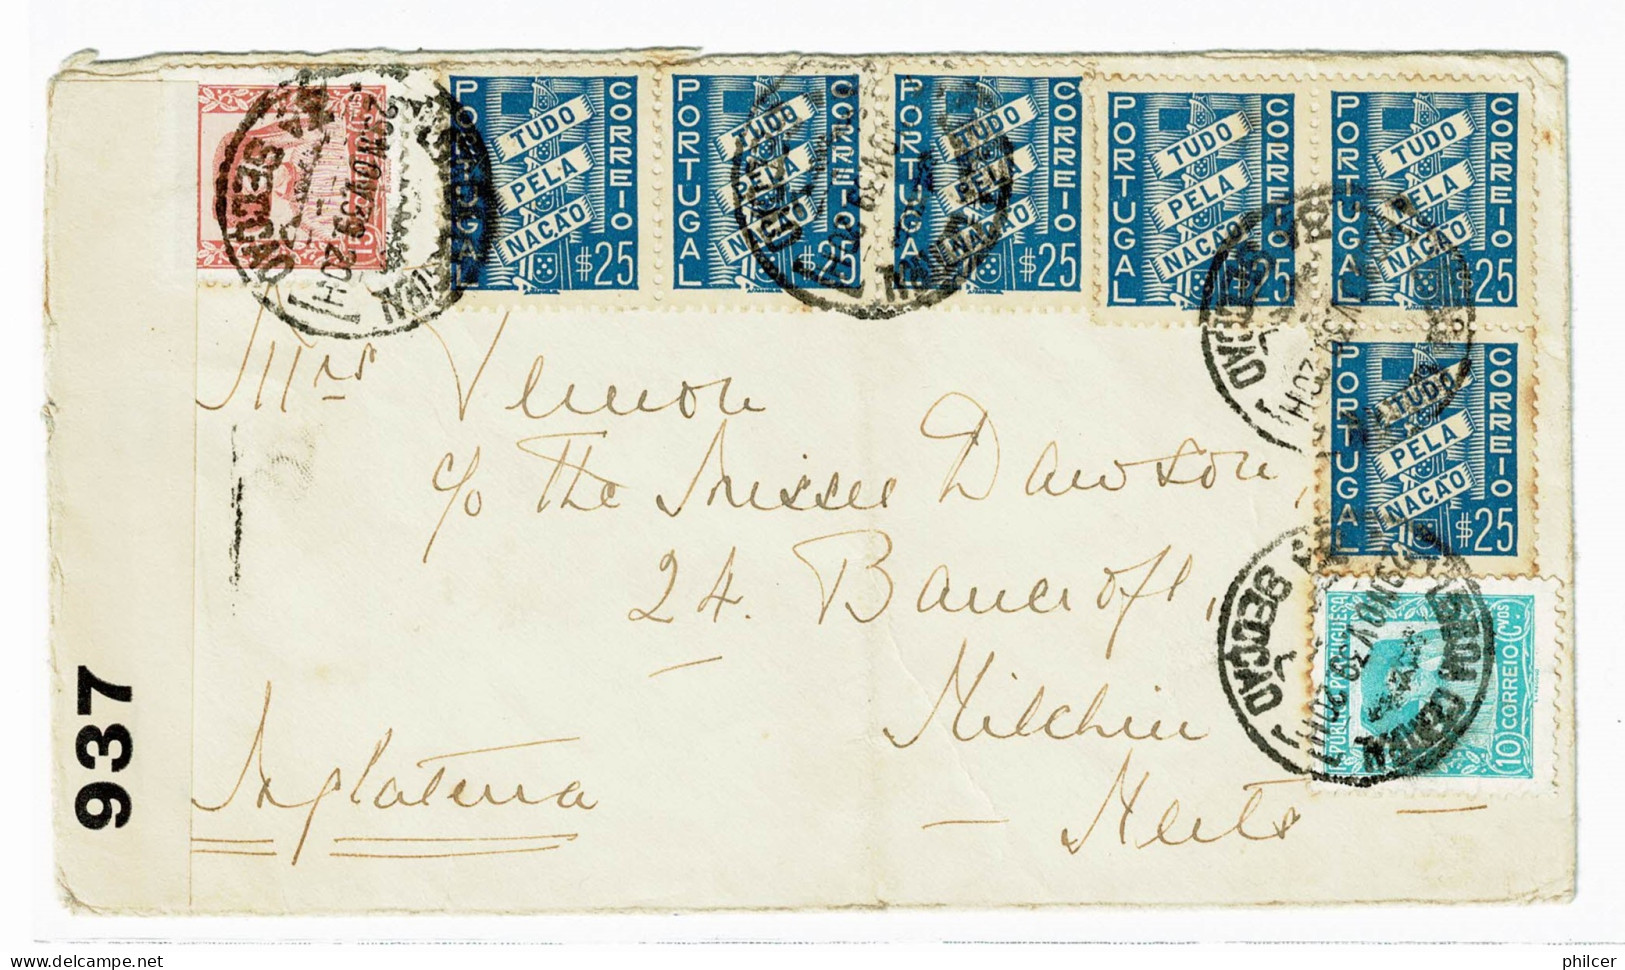 PORTUGAL CORREIO TUDO PELA NAÇÃO $25
PORTUGAL CORREIO TUDO PELA NAÇÃO $25
PORTUGAL CORREIO TUDO PELA NAÇÃO $25
PORTUGAL CORREIO TUDO PELA NAÇÃO $25
PORTUGAL CORREIO TUDO PELA NAÇÃO $25
PORTUGAL CORREIO TUDO PELA NAÇÃO $25
REPUBLICA PORTUGUESA CORREIO 10 C.VOS
SECÇÃO
NOV 39 20H
Mrs Vernon
c/o The Misses Dawson,
24. Bancroft,
Hitchin
Herts
Inglaterra
937
philcer